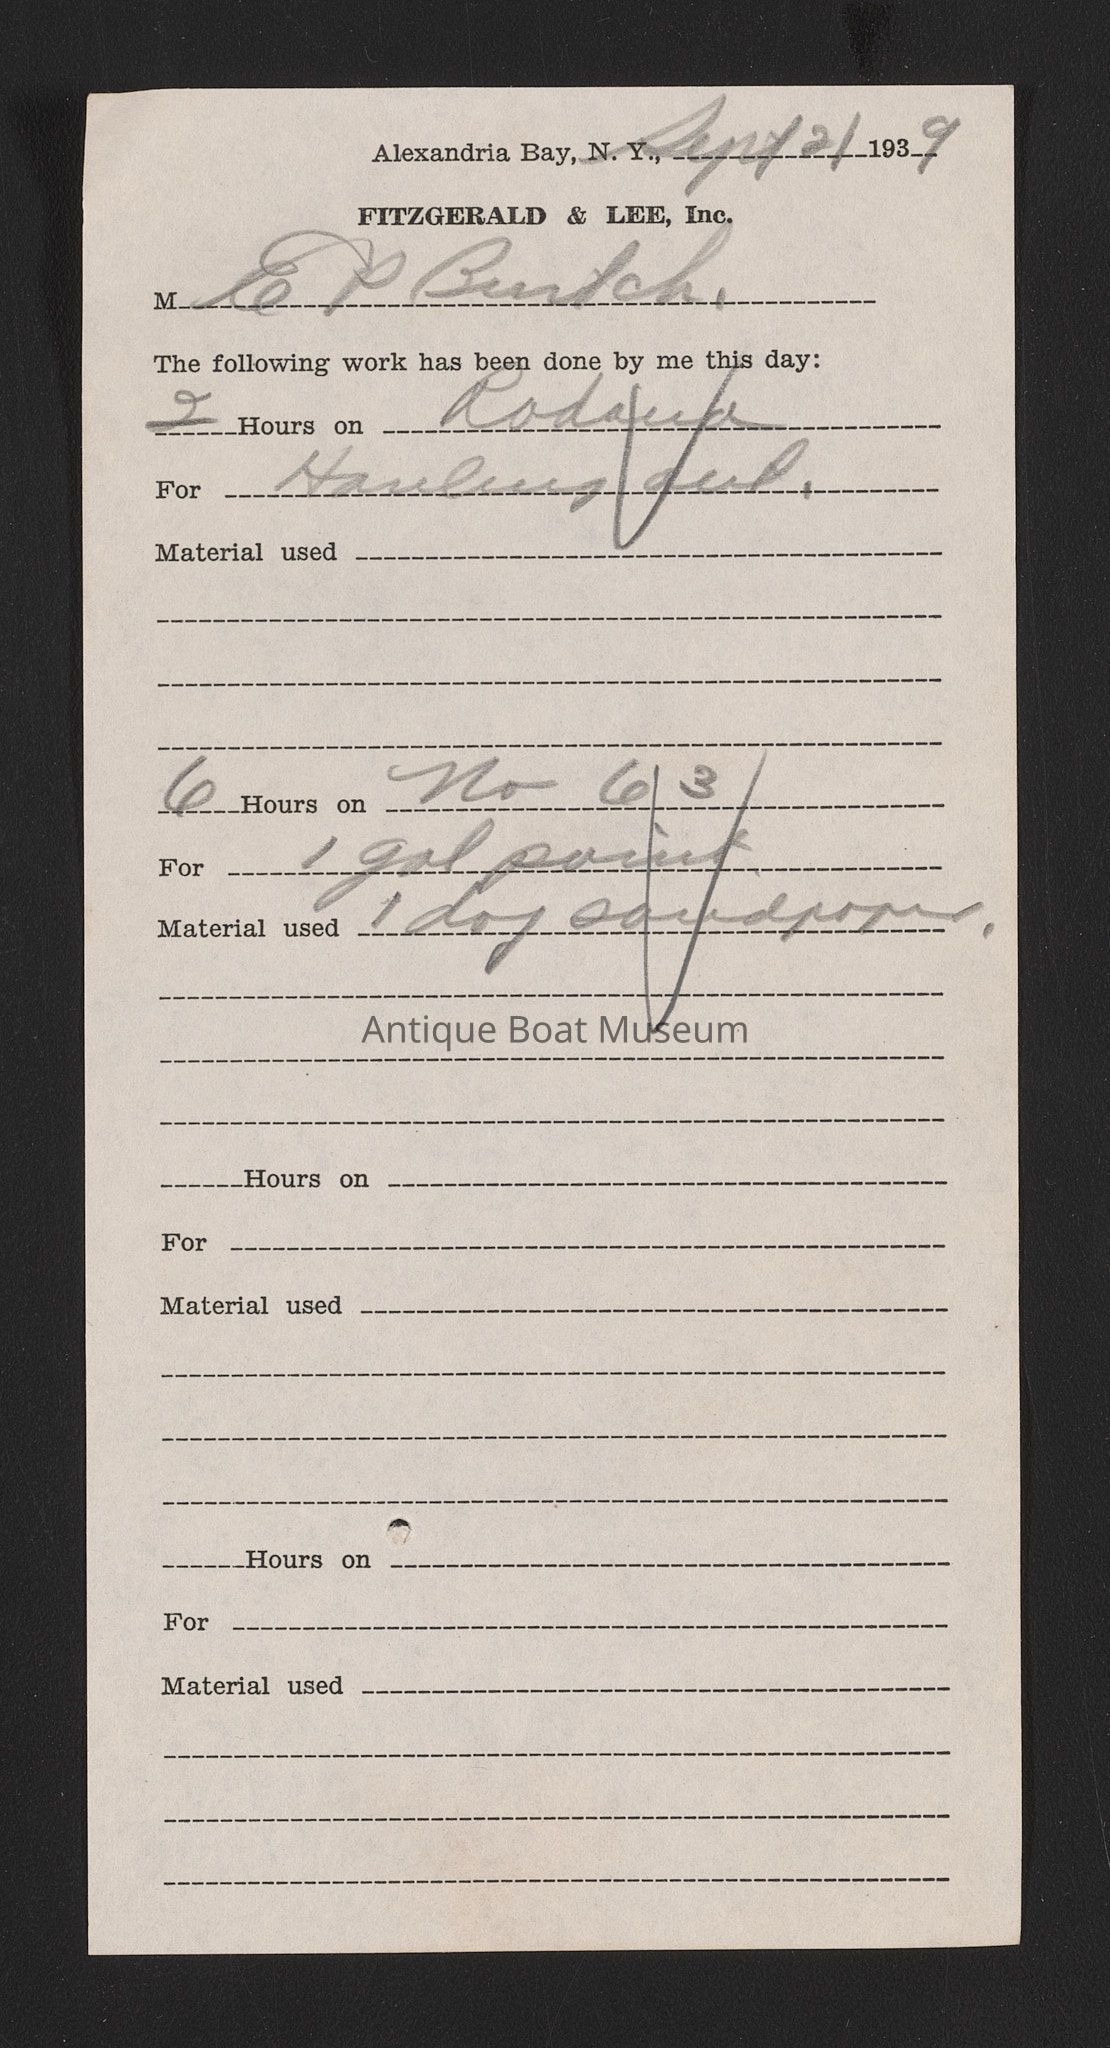 Alexandria Bay, N. Y., Sept 21 1939
FITZGERALD & LEE, Inc.
M E P Burtch.
The following work has been done by me this day:
2 Hours on
For Hauling out.
Material used
6 Hours on No 63
For 1 gal paint
Material used 1 doz sandpaper.
Antique Boat Museum
Hours on
For
Material used
Hours on
For
Material used